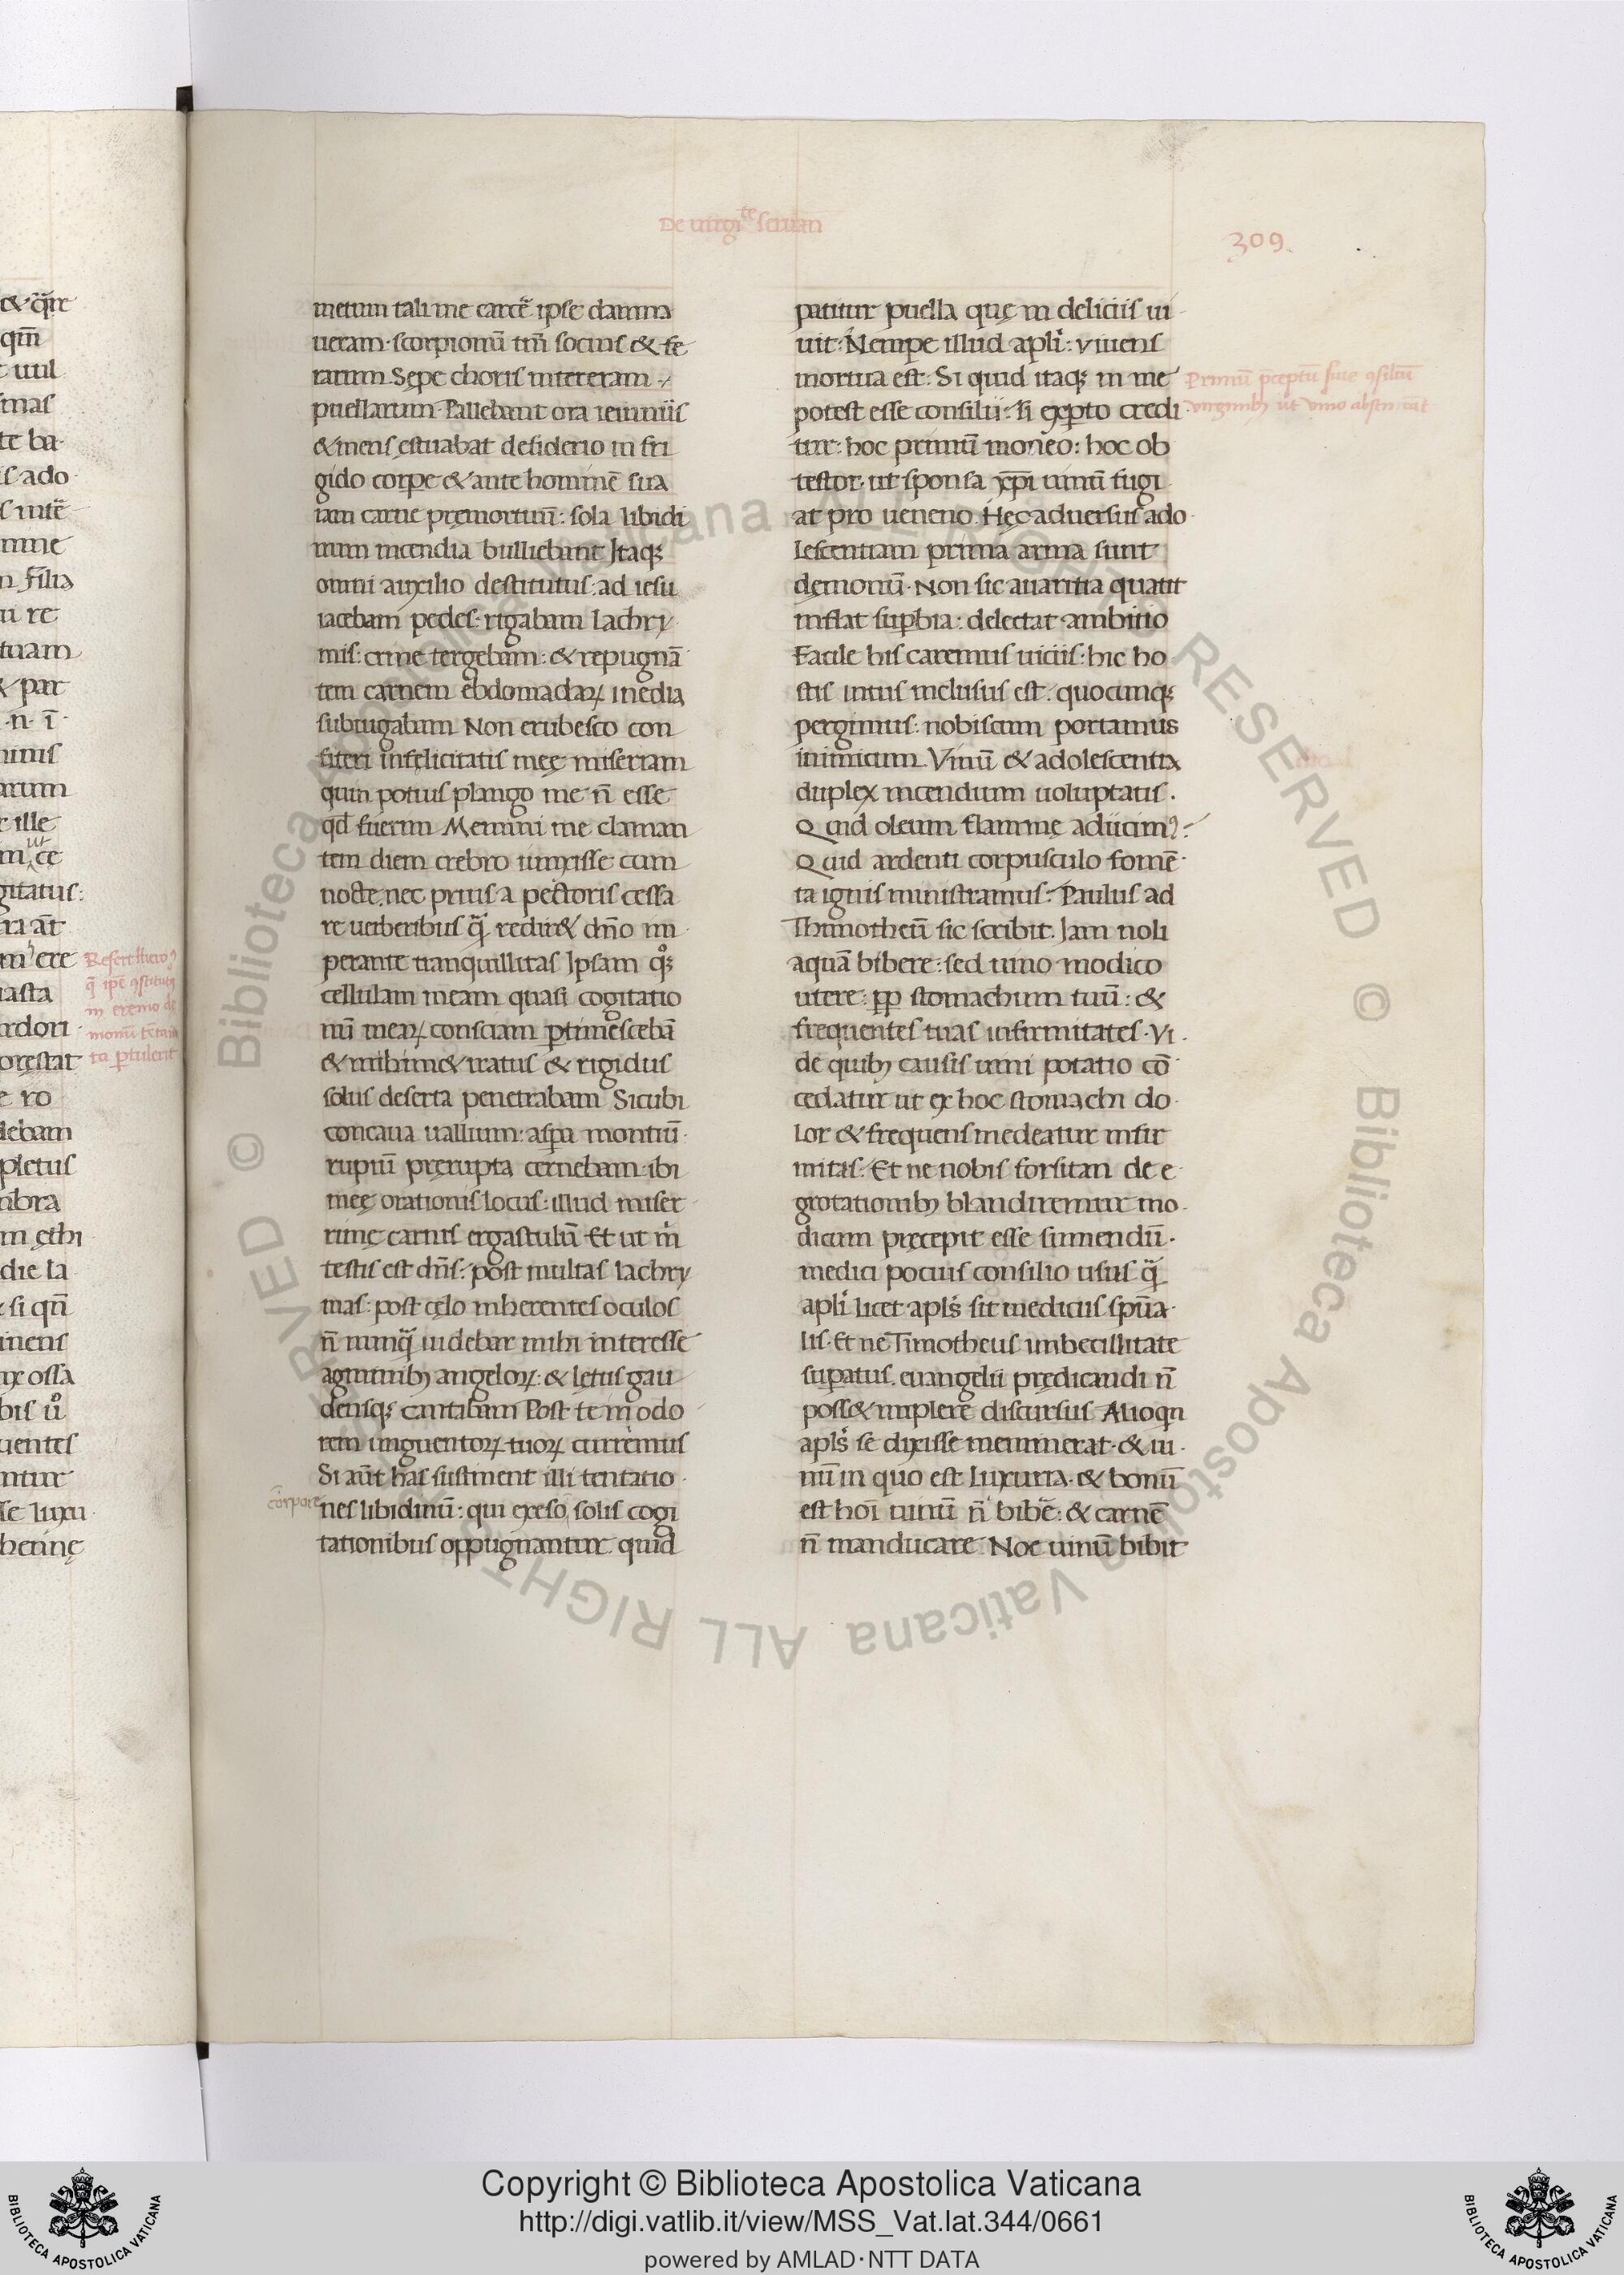 De uirgi^te seruan
309.
metum tali me carcē ipse damna
ueram· scorpionū tm̄ socius & fe
rarum. Sępe choris intereram
puellarum. Pallebant ora ieiuniis
& mens ęstuabat desiderio in fri
gido corpe & ante hominē sua
iam carne pręmortuū: sola libidi
num incendia bulliebant Itaqꝫ
omni auxilio destitutus: ad iesu
iacebam pedes: rigabam lachry
mis: crine tergebam: & repugnā
tem carnem ebdomadaꝝ inedia
subiugabam Non erubesco con
fiteri infęlicitatis meę miseriam
quin potius plango me n̄ esse
qđ fuerim Memini me claman
tem diem crebro iunxisse cum
nocte, nec prius a pectoris cessa
re uerberibus q̄ redir& dn̄o im
perante tranquillitas Ipsam qͦꝫ
cellulam meam quasi cogitatio
nū meaꝝ consciam ꝑtimescebā
& mihim& iratus & rigidus
solus deserta penetrabam Sicubi
concaua uallium: aspa montiū·
rupiū pręrupta cernebam· ibi
meę orationis locus: illud miser
rimę carnis ergastulū Et ut m̄
testis est dn̄s: post multas lachry
mas: post cęlo inherentes oculos
n̄ nunq̄ uidebar mihi interesse
agminibꝫ angeloꝝ: & letus gau
densqꝫ cantabam Post te in odo
rem unguentoꝝ tuoꝝ curremus
Si aūt has sustinent illi tentatio
corpore
nes libidinū: qui exeso, solis cogi
tationibus oppugnantur. quid
patitur puella quę in deliciis ui
uit: Nempe illud apli: viuens
mortua est: Si quid itaqꝫ in me
potest esse consilii: si exꝑto credi
tur: hoc primū moneo: hoc ob
testor· ut sponsa xp̄i uinū fugi
at pro ueneno. Hęc aduersus ado
lescentiam prima arma sunt
dęmonū· Non sic auaritia quatit
inflat supbia: delectat ambitio
Facile his caremus uiciis: hic ho
stis intus inclusus est: quocunqꝫ
pergimus: nobiscum portamus
inimicum. Vinū & adolescentia
duplex incendium uoluptatis.
Quid oleum flammę adiicimꝰ?
Quid ardenti corpusculo fomē
ta ignis ministramus? Paulus ad
Thimotheū sic scribit. Iam noli
aquā bibere: sed uino modico
utere: ꝓp stomachum tuū: &
frequentes tuas infirmitates. Vi
de quibꝫ causis uini potatio cō
cedatur ut ex hoc stomachi do
lor & frequens medeatur infir
mitas: Et ne nobis forsitan de e
grotationibꝫ blandiremur mo
dicum pręcepit esse sumendū.
medici pocius consilio usus q̄
apli licet apls sit medicus spūa
lis. Et ne Timotheus imbecillitate
suꝑatus. euangelii prędicandi n̄
poss& implere discursus Alioqn
apls se dixisse meminerat· & ui
nū in quo est luxuria· & bonū
est hoi uinū n̄ bibē: & carnē
n̄ manducare Noe uinū bibit
Primū p̄ceptū siue ꝯsiliū
uirginibꝫ ut uino abstin
& q̄re
qm̄
uul
mas
te ba
is ado
mme
n filia
ui re
tuam
& par
n· ī·
arum
ille
gitatus:
ra aūt
asta
ardori
pręstat
e ro
debam
pletus
mbra
m ęthi
die la
si qn̄
mens
ossa
bis ů
uentes
ntur
se luxu
herinę
Refert hieroꝰ
q̄ ipē ꝯstitutꝰ
in eremo de
monū tētam
ta ꝑtulerit
© Biblioteca Apostolica Vaticana ALL RIGHTS RESERVED © Biblioteca Apostolica Vaticana ALL RIGHTS RESERVED
BIBLIOTECA APOSTOLICA VATICANA
Copyright © Biblioteca Apostolica Vaticana
http://digi.vatlib.it/view/MSS_Vat.lat.344/0661
powered by AMLAD·NTT DATA
BIBLIOTECA APOSTOLICA VATICANA